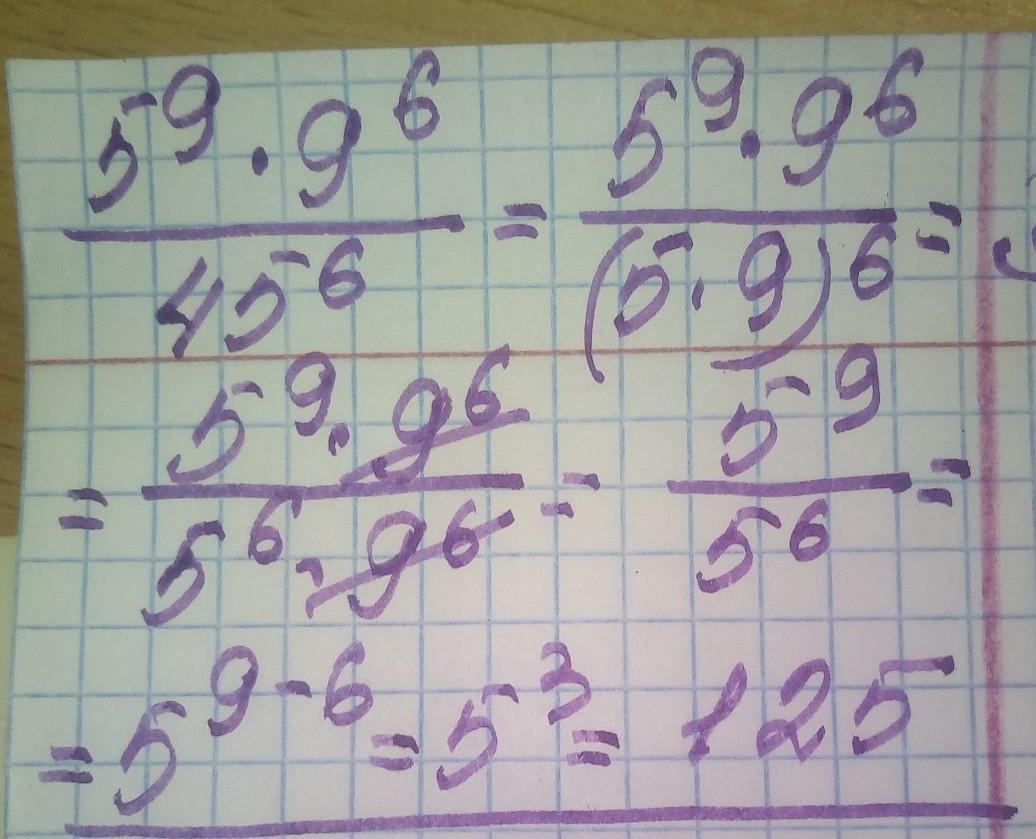 5⁹ · 9⁶ / 45⁶ = 5⁹ · 9⁶ / (5 · 9)⁶ =
= 5⁹ · 9⁶ / 5⁶ · 9⁶ = 5⁹ / 5⁶ =
= 5⁹⁻⁶ = 5³ = 125